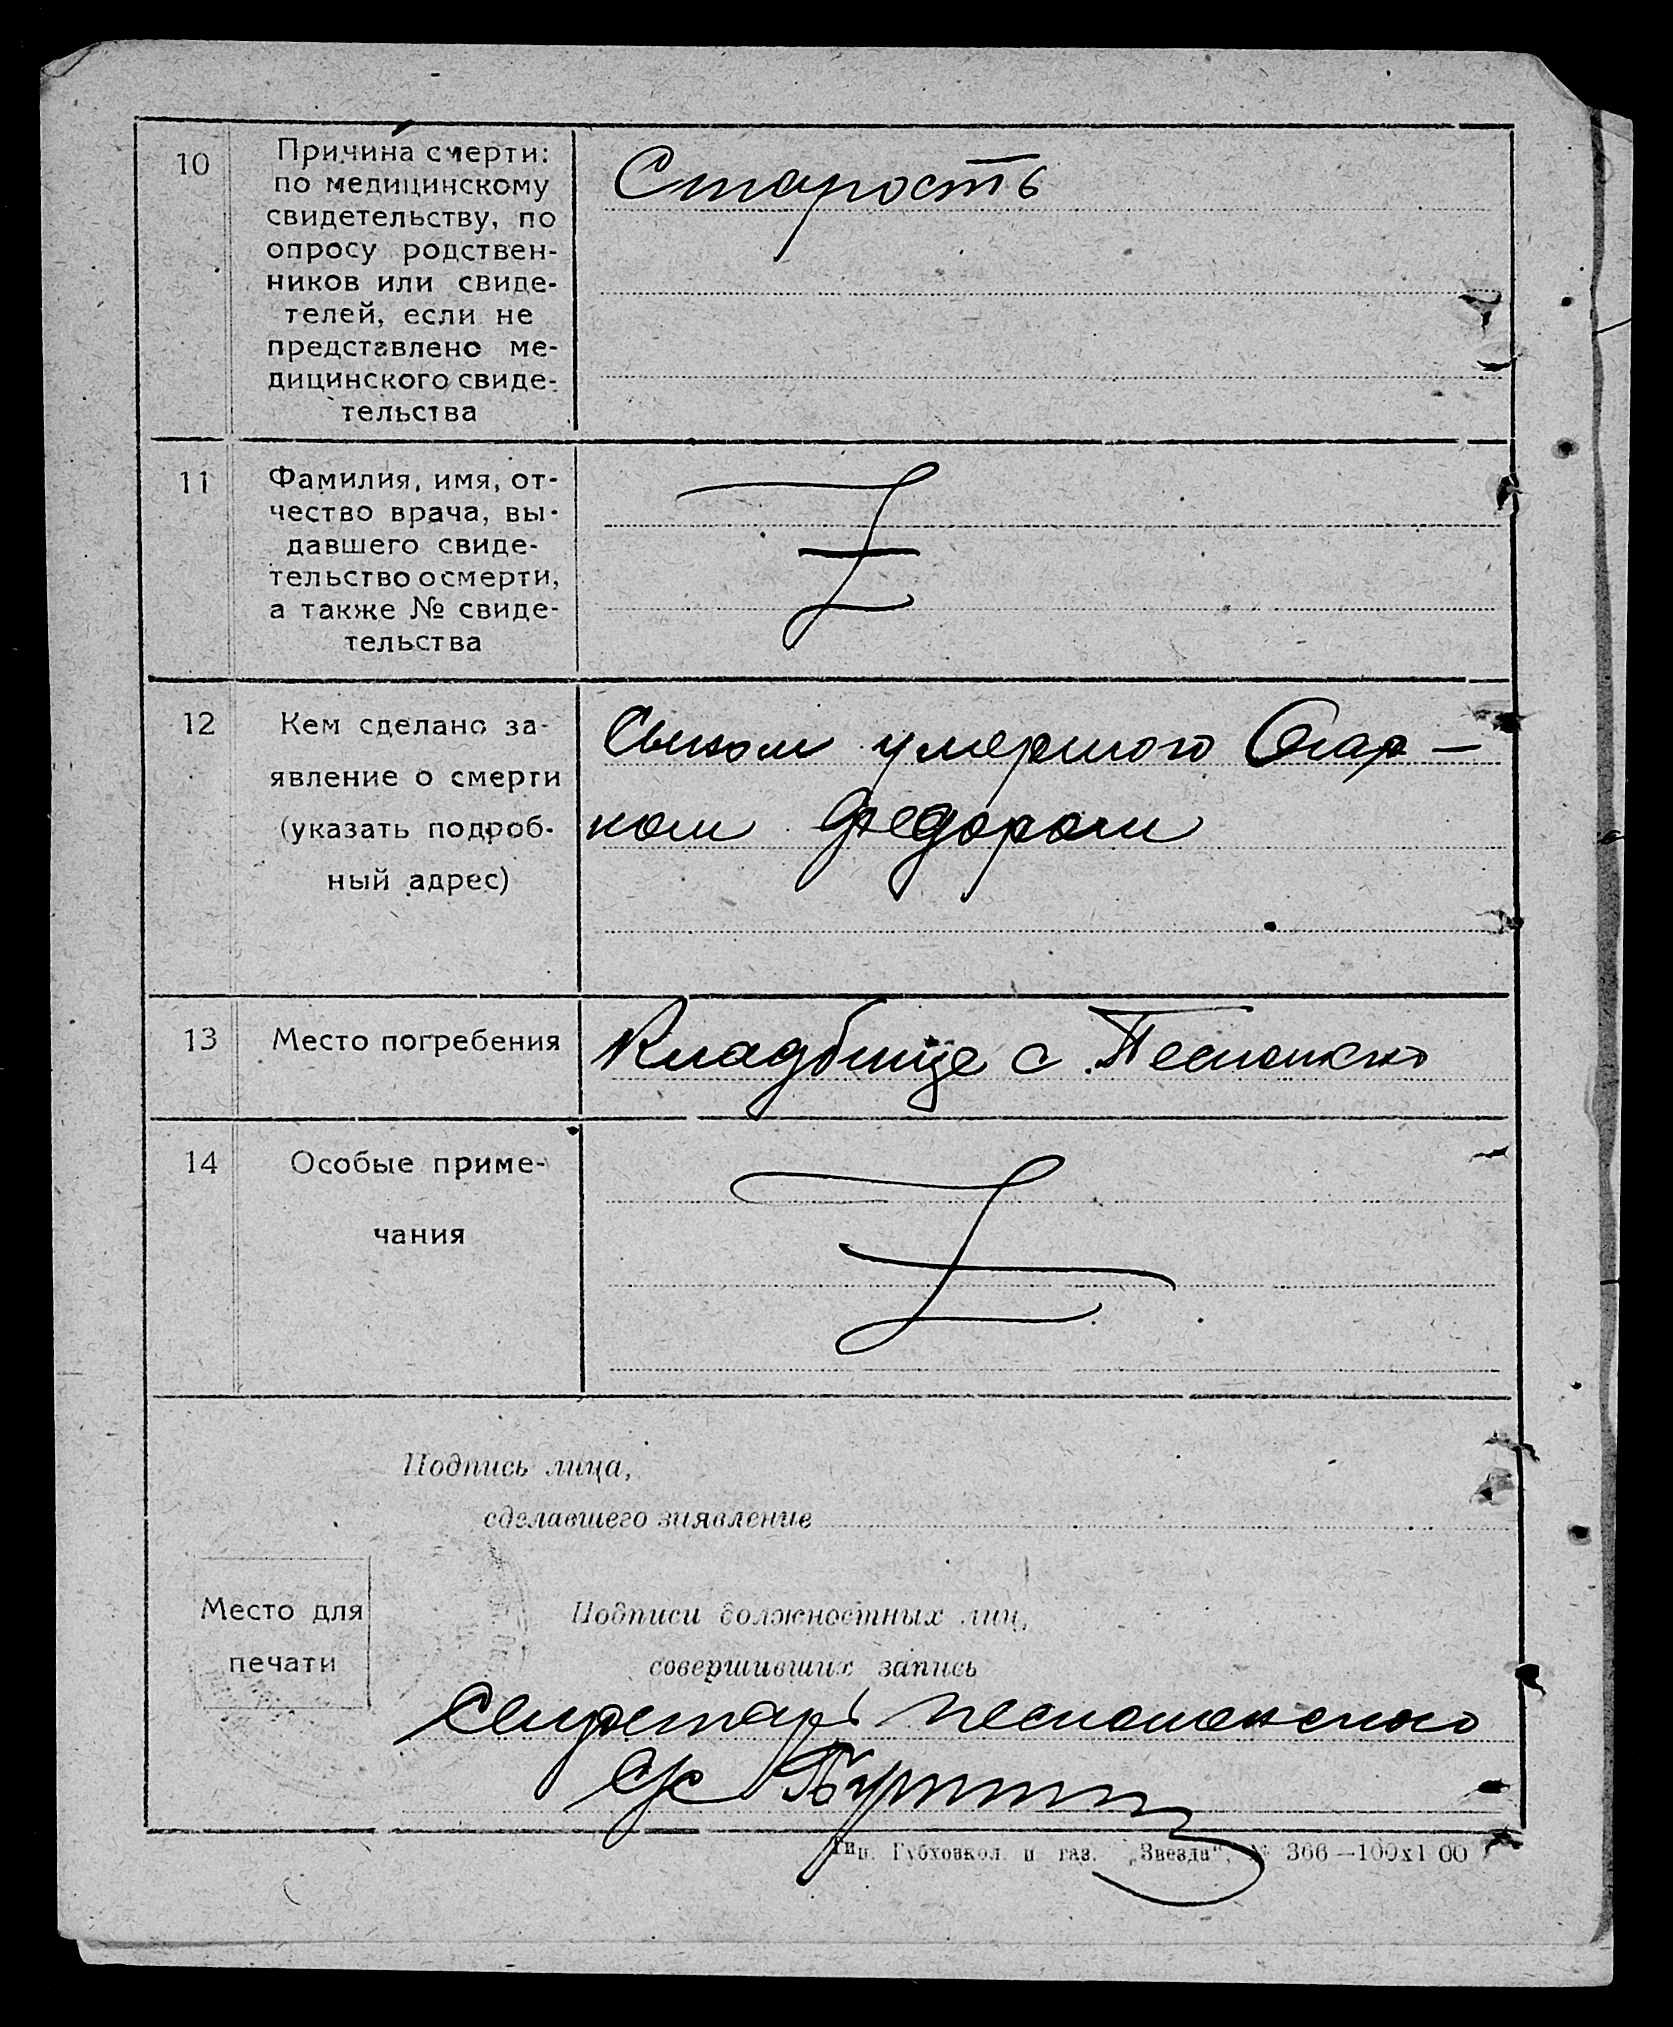 10
Причина смерти:
по медицинскому
свидетельству, по
опросу родствен-
ников или свиде-
телей, если не
представлено ме-
дицинского свиде-
тельства
Старость
11
Фамилия, имя, от-
чество врача, вы-
давшего свиде-
тельство о смерти,
а также № свиде-
тельства
12
Кем сделано за-
явление о смерти
(указать подроб-
ный адрес)
Сыном умершого
ком Федором
13
Место погребения
Кладбище с.
14
Особые приме-
чания
Подпись лица,
сделавшего заявление
Место для
печати
Подписи должностных лиц,
совершивших запись
Секретарь
с/с
Тип. Губхозкол. и газ. „Звезда“, № 366—100х1 00